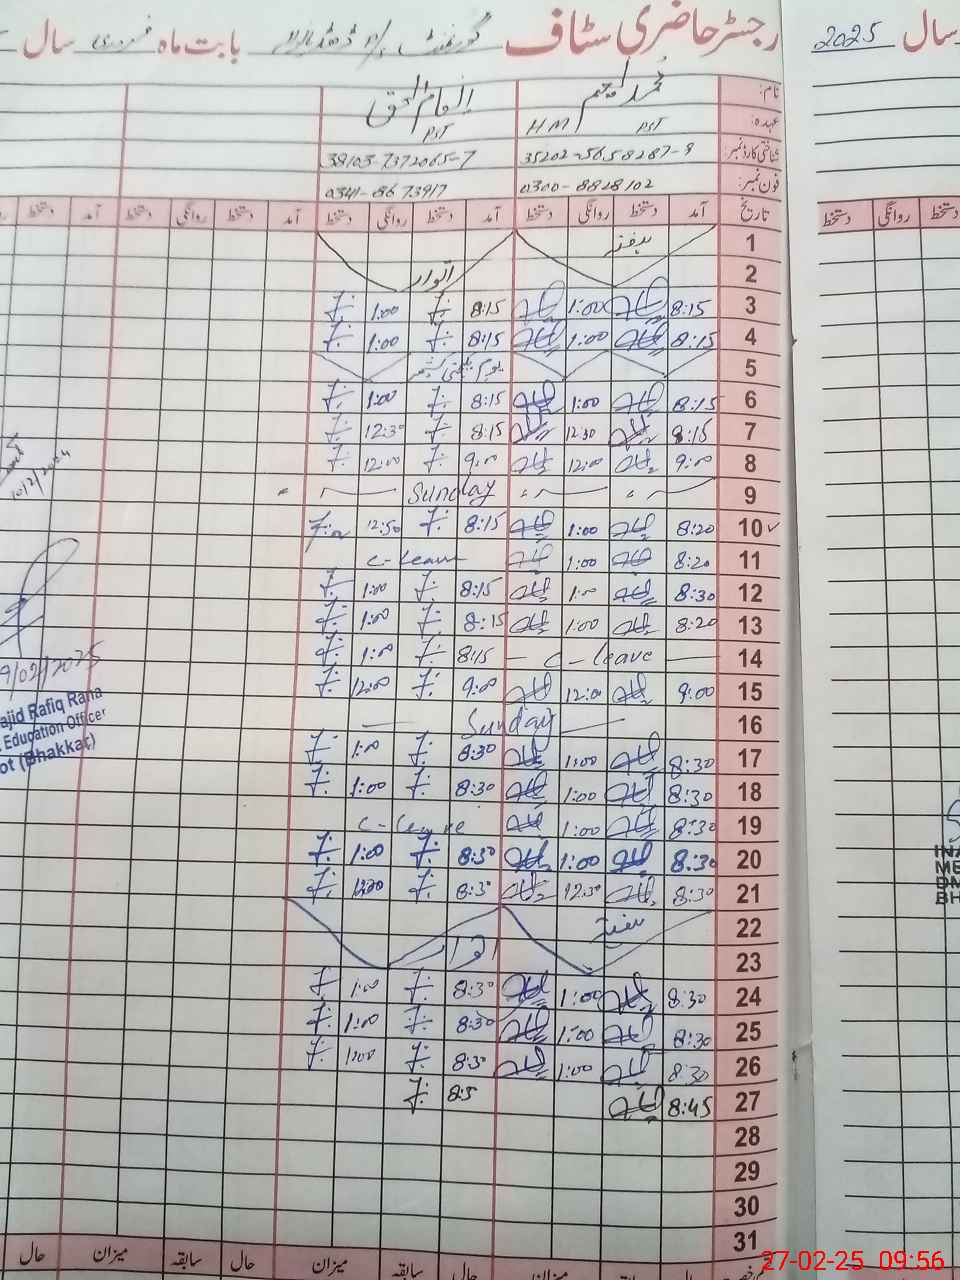 رجسٹر حاضری سٹاف گورنمنٹ بابت ماہ فروری سال
سال 2025
نام: محمد انعام الحق
عہدہ: PST HM PST
شناختی کارڈ نمبر: 35202-5658287-9 38103-7372065-7
فون نمبر: 0300-8828102 0341-8673917
تاریخ آمد دستخط روانگی دستخط آمد دستخط روانگی دستخط آمد دستخط روانگی دستخط آمد
دستخط روانگی دستخط
1 ہفتہ
2 اتوار
3 8:15 1:00 8:15 1:00
4 8:15 1:00 8:15 1:00
5 یوم
6 8:15 1:00 8:15 1:00
7 8:15 12:30 8:15 12:30
8 9:00 12:00 9:00 12:00
9 Sunday
10 8:20 1:00 8:15 12:50
11 8:20 1:00 C-Leave
12 8:30 1:00 8:15 1:00
13 8:20 1:00 8:15 1:00
14 C-leave 8:15 1:00
15 9:00 12:00 9:00 12:00
16 Sunday
17 8:30 1:00 8:30 1:00
18 8:30 1:00 8:30 1:00
19 8:30 1:00 C-Leave
20 8:30 1:00 8:30 1:00
21 8:30 12:30 8:30 1230
22 ہفتہ
23 اتوار
24 8:30 1:00 8:30 1:00
25 8:30 1:00 8:30 1:00
26 8:30 1:00 8:30 1:00
27 8:45 8:5
28
29
30
31
میزان سابقہ حال میزان سابقہ حال
10/2/2024
9/02/2025
ajid Rafiq Rana
Education Officer
ot (Bhakkar)
INA
ME
DM
BH
27-02-25 09:56